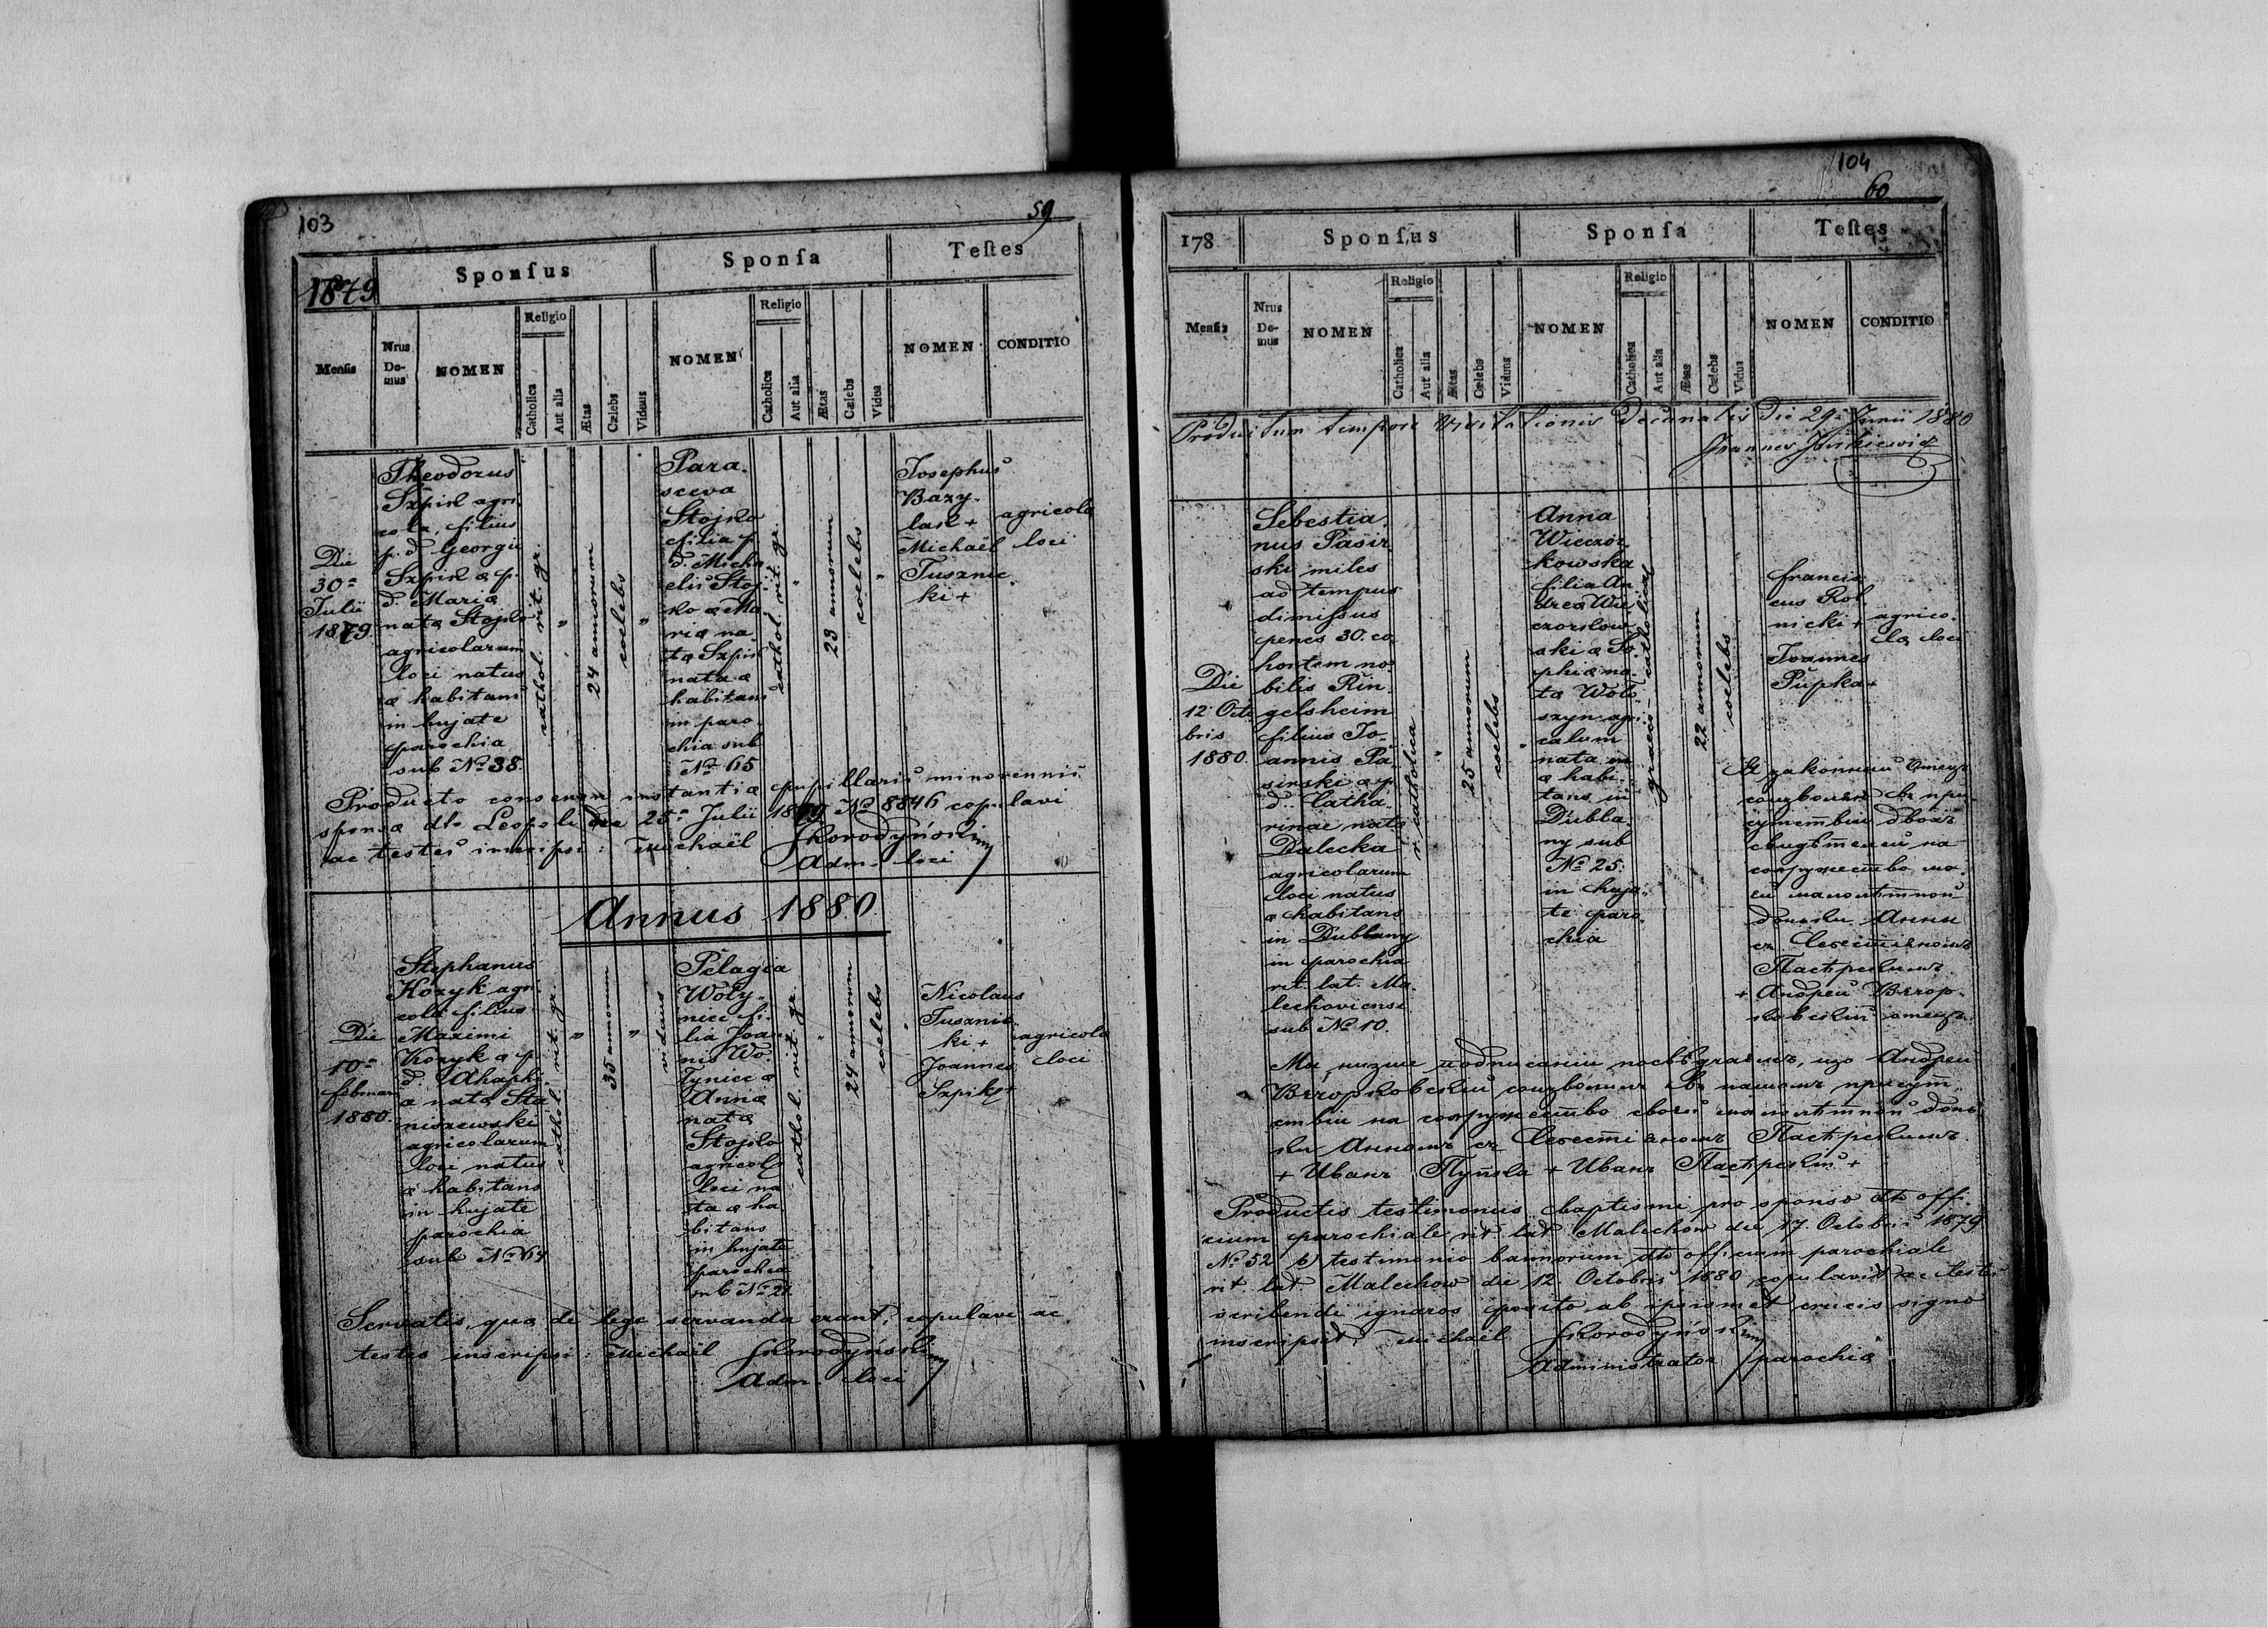 103
59
1879
Sponſus
Sponſa
Teſtes
Menſis
Nrus Do-mus
NOMEN
Religio
Catholica
Aut alia
Ætas
Cælebs
Viduus
NOMEN
Religio
Catholica
Aut alia
Ætas
Cælebs
Vidua
NOMEN
CONDITIO
Die
30ª
Julii
1879
Theodorus
Szpik agri
cola, filius
p. d. Georgii
Szpik & p.
d. Maria
nata Stojko
agricolarum
loci natus
& habitans
in hujate
parochia
sub No 38.
cathol. rit. gr.
"
24 annorum
coelebs
"
Para.
sceva
Stojko
filia p.
d. Micha
elis Stoj.
ko & Ma
ria na.
ta Szpik
nata &
habitans
in paro.
chia sub
No 65
cathol. rit. gr.
"
23 annorum
coelebs
"
Josephus
Bazy.
lak +
Michaël
Tusznic
ki +
agricola
loci
Producto consensu instantiæ pupillaris minorennis
sponsæ dto Leopoli die 25ª Julii 1879 No 8846 copulavi
ac testes inscripsi: Michaël Skorodyński
Adm. loci
Annus 1880
Die
10ª
febmar
1880.
Stephanus
Kozyk agri.
cola filius
Maximi
Kozyk & p.
d. Ahaphi
a nata Sta
niszewski
agricolarum
loci natus
& habitans
in hujate
parochia
sub No 64
cathol. rit. gr.
"
35 annorum
"
viduus
Pelagia
Woły.
niec fi.
lia Joan
nis Wo.
łyniec &
Anna
nata
Stojko
agricol
loci na
ta & ha
bitans
in hujate
parochia
sub No 21
cathol. rit. gr.
"
24 annorum
coelebs
"
Nicolaus
Tusznic
ki +
Joannes
Szpik +
agricola
loci
Servatis, quæ de lege servanda erant, copulavi ac
testes inscripsi: Michaël Skorodyński
Adm. loci
104
60
178
Sponſus
Sponſa
Teſtes
Menſis
Nrus Do-mus
NOMEN
Religio
Catholica
Aut alia
Ætas
Cælebs
Viduus
NOMEN
Religio
Catholica
Aut alia
Ætas
Cælebs
Vidua
NOMEN
CONDITIO
Produitum tempore Visitationis Decanalis Die 29ª Junii 1880
Die
12 Octo
bris
1880.
Sebestia.
nus Pasir
ski miles
ad tempus
dimissus
penes 30. co
hortem no.
bilis Rin.
gelsheim
filius Jo.
annis Pa
sirski & p.
d. Catha.
rinae nata
Dalecka
agricolarum
loci natus
& habitans
in Dublany
in parochia
rit. lat. Ma.
lechoviensi
sub No 10.
r. catholica
"
25 annorum
coelebs
"
Anna
Wieczor
kowska
filia An
drea Wie
czorkow
ski & So.
phia na.
ta Woło
szyn agri
colum
nata
& habi.
tans in
Dubla
ny sub
No 25.
in huja.
te paro.
chia
graeco-catholica
22 annorum
coelebs
Francis
cus Rol
nicki +
Joannes
Pupka +
agrico.
la loci
Яко законный отецъ
соизволяю въ при
сутствіи двохъ
свидѣтелей на
сопружество мо.
еи малолѣтной
доньки Анны
съ Севестіяномъ
Пасѣрскимъ
+ Андрей Вѣчор.
ковскій отецъ.
Мы низше подписаніи посвѣдчаемъ, що Андрей
Вѣчорковскій соизволилъ въ нашомъ присут
ствіи на сопружество своеи малолѣтной донь
ки Анны съ Севестіяномъ Пасѣрскимъ.
+ Иванъ Пупка + Иванъ Пасѣрскій +
Productis testimoniis baptismi pro sponso dto offi.
cium parochiale rit. lat. Malechow die 17. Octobris 1879
No 52 b) testimonio bannorum dto officium parochiale
rit. lat. Malechow die 12 Octobris 1880 copulavit ac testes
scribendi ignaros posito ab ipsismet crucis signo
inscripsit: Michaël Skorodyński
Administrator parochiæ